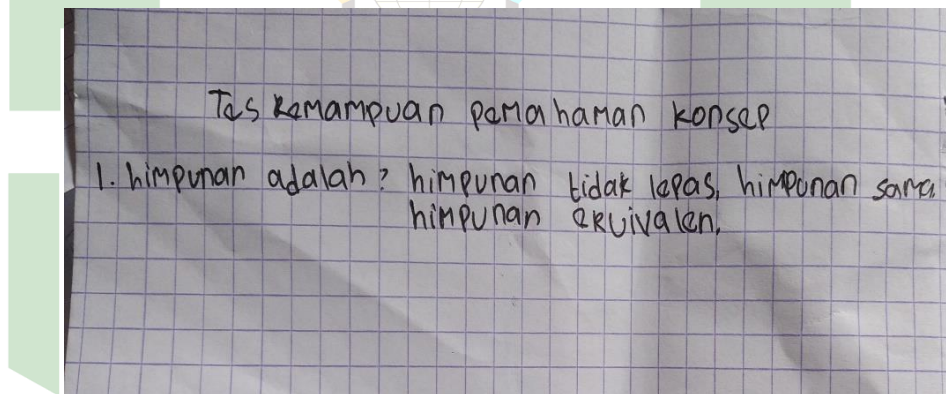 Tes kemampuan pemahaman konsep
1. himpunan adalah? himpunan tidak lepas, himpunan sama
himpunan ekuivalen.